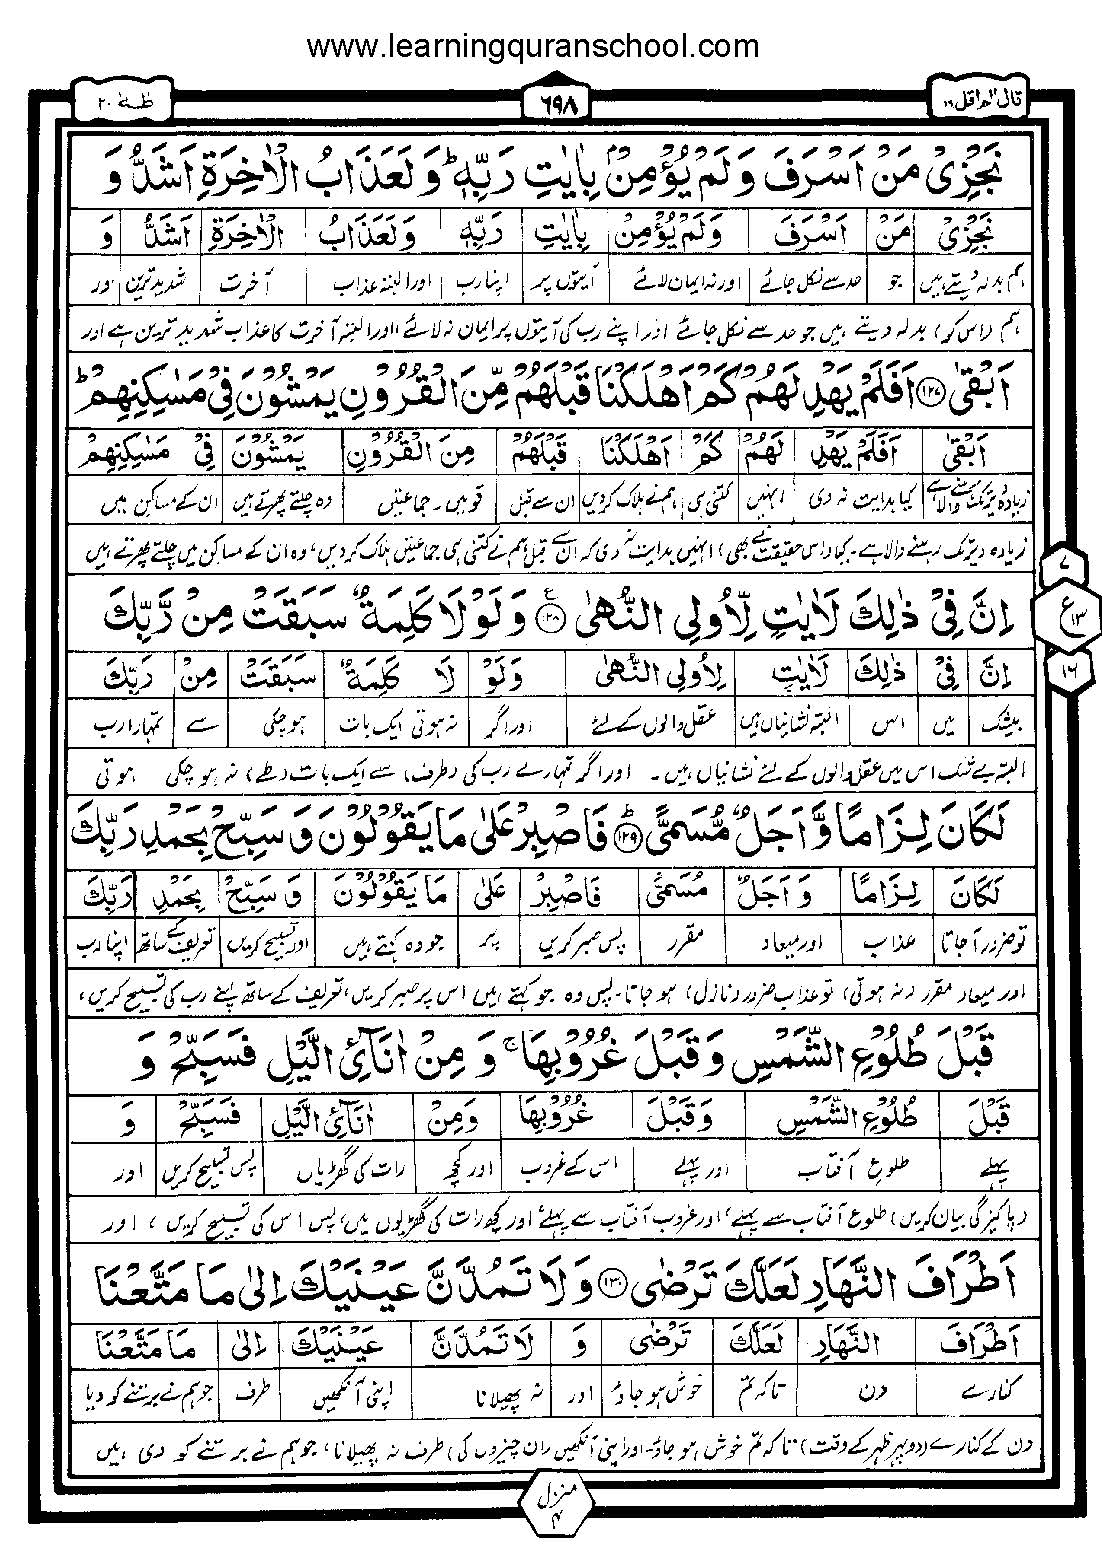 www.learningquranschool.com
قال الم اقل ١٦
٦٩٨
طٰهٰ ٢٠
نَجْزِیْ مَنْ اَسْرَفَ وَ لَمْ یُؤْمِنْۢ بِاٰیٰتِ رَبِّهٖ ؕ وَ لَعَذَابُ الْاٰخِرَةِ اَشَدُّ وَ
نَجْزِیْ مَنْ اَسْرَفَ وَ لَمْ یُؤْمِنْ بِاٰیٰتِ رَبِّهٖ وَ لَعَذَابُ الْاٰخِرَةِ اَشَدُّ وَ
ہم بدلہ دیتے ہیں جو حد سے نکل جائے اور نہ ایمان لائے آیتوں پر اپنا رب اور البتہ عذاب آخرت شدید ترین اور
ہم (اس کو) بدلہ دیتے ہیں جو حد سے نکل جائے اور اپنے رب کی آیتوں پر ایمان نہ لائے، اور البتہ آخرت کا عذاب شدید ترین ہے اور
اَبْقٰی ﴿١٢٧﴾ اَفَلَمْ یَهْدِ لَهُمْ كَمْ اَهْلَكْنَا قَبْلَهُمْ مِّنَ الْقُرُوْنِ یَمْشُوْنَ فِیْ مَسٰكِنِهِمْ ؕ
اَبْقٰی اَفَلَمْ یَهْدِ لَهُمْ كَمْ اَهْلَكْنَا قَبْلَهُمْ مِنَ الْقُرُوْنِ یَمْشُوْنَ فِیْ مَسٰكِنِهِمْ
زیادہ دیر تک رہنے والا ہے کیا ہدایت نہ دی انہیں کتنی ہی ہم نے ہلاک کردیں ان سے قبل قومیں۔ جماعتیں وہ چلتے پھرتے ہیں ان کے مساکن میں
زیادہ دیر تک رہنے والا ہے۔ کیا (اس حقیقت نے بھی) انہیں ہدایت نہ دی کہ ان سے قبل ہم نے کتنی ہی جماعتیں ہلاک کردیں، وہ ان کے مساکن میں چلتے پھرتے ہیں
اِنَّ فِیْ ذٰلِكَ لَاٰیٰتٍ لِّاُولِی النُّهٰی ﴿١٢٨﴾ ع وَ لَوْ لَا كَلِمَةٌ سَبَقَتْ مِنْ رَّبِّكَ
٧
ع ١٣
١٦
اِنَّ فِیْ ذٰلِكَ لَاٰیٰتٍ لِاُولِی النُّهٰی وَ لَوْ لَا كَلِمَةٌ سَبَقَتْ مِنْ رَبِّكَ
بیشک میں اس البتہ نشانیاں ہیں عقل والوں کے لئے اور اگر نہ ہوتی ایک بات ہو چکی سے تمہارا رب
البتہ بے شک اس میں عقل والوں کے لئے نشانیاں ہیں۔ اور اگر تمہارے رب کی (طرف) سے ایک بات (طے) نہ ہو چکی ہوتی
لَكَانَ لِزَامًا وَّ اَجَلٌ مُّسَمًّی ؕ ﴿١٢٩﴾ فَاصْبِرْ عَلٰی مَا یَقُوْلُوْنَ وَ سَبِّحْ بِحَمْدِ رَبِّكَ
لَكَانَ لِزَامًا وَ اَجَلٌ مُسَمًّی فَاصْبِرْ عَلٰی مَا یَقُوْلُوْنَ وَ سَبِّحْ بِحَمْدِ رَبِّكَ
تو ضرور آ جاتا عذاب اور میعاد مقرر پس صبر کریں پر جو وہ کہتے ہیں اور تسبیح کریں تعریف کے ساتھ اپنا رب
اور میعاد مقرر (نہ ہوتی) تو عذاب ضرور (نازل) ہو جاتا۔ پس وہ جو کہتے ہیں اس پر صبر کریں، تعریف کے ساتھ اپنے رب کی تسبیح کریں،
قَبْلَ طُلُوْعِ الشَّمْسِ وَ قَبْلَ غُرُوْبِهَا ۚ وَ مِنْ اٰنَآئِ الَّیْلِ فَسَبِّحْ وَ
قَبْلَ طُلُوْعِ الشَّمْسِ وَ قَبْلَ غُرُوْبِهَا وَ مِنْ اٰنَآئِ الَّیْلِ فَسَبِّحْ وَ
پہلے طلوع آفتاب اور پہلے اس کے غروب اور کچھ رات کی گھڑیاں پس تسبیح کریں اور
(پاکیزگی بیان کریں) طلوع آفتاب سے پہلے، اور غروب آفتاب سے پہلے، اور کچھ رات کی گھڑیوں میں، پس اس کی تسبیح کریں، اور
اَطْرَافَ النَّهَارِ لَعَلَّكَ تَرْضٰی ﴿١٣٠﴾ وَ لَا تَمُدَّنَّ عَیْنَیْكَ اِلٰی مَا مَتَّعْنَا
اَطْرَافَ النَّهَارِ لَعَلَّكَ تَرْضٰی وَ لَا تَمُدَّنَّ عَیْنَیْكَ اِلٰی مَا مَتَّعْنَا
کنارے دن تاکہ تم خوش ہو جاؤ اور نہ پھیلانا اپنی آنکھیں طرف جو ہم نے برتنے کو دیا
دن کے کنارے (دوپہر ظہر کے وقت) تاکہ تم خوش ہو جاؤ۔ اور اپنی آنکھیں (ان چیزوں کی) طرف نہ پھیلانا، جو ہم نے برتنے کو دی ہیں
منزل ٤